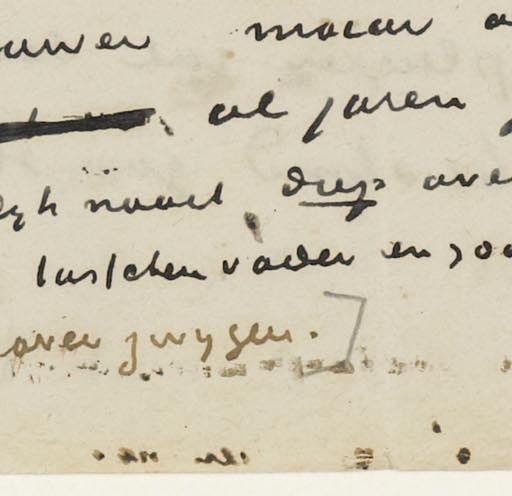 maar
al jaren
nooit diep over
tusschen vader en zoo
over zwygen.